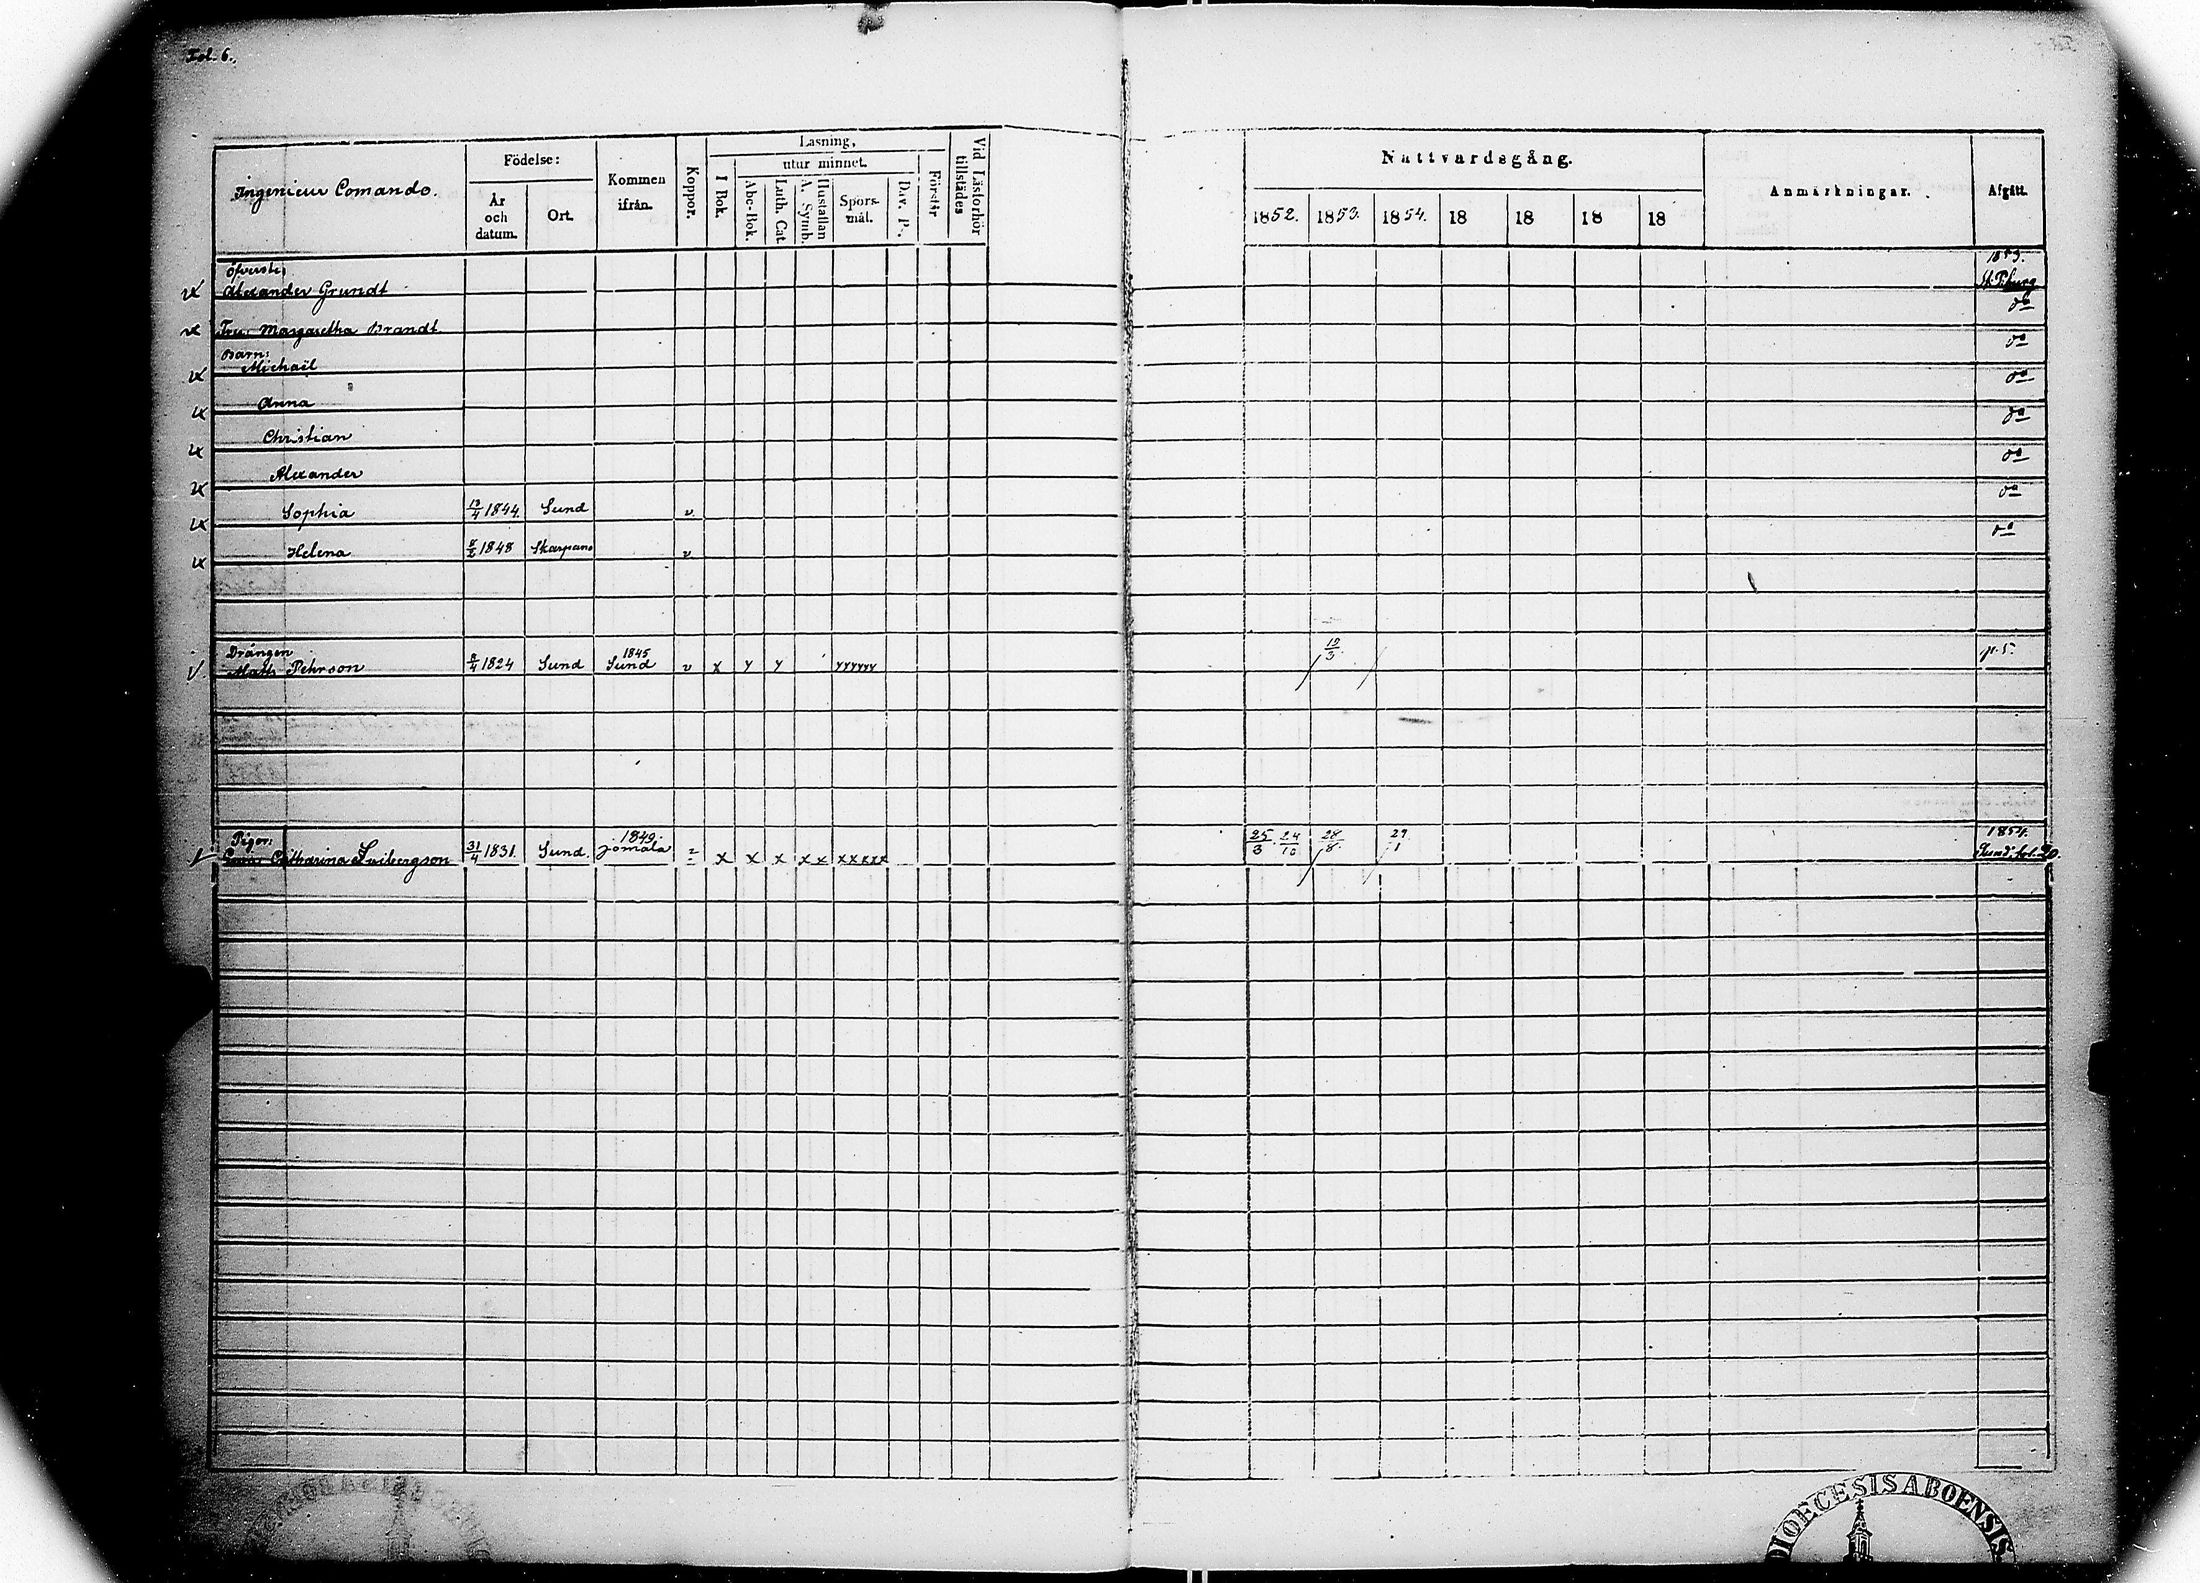 Fol. 6.
Ingenieur Comando.
Födelse:
År och datum.
Ort.
Kommen ifrån.
Koppor.
Läsning,
I Bok.
utur minnet.
Abc-Bok.
Luth. Cat.
Hustaflan A. Symb.
Spörs-mål.
Dav. Ps.
Förstår
Vid Läsförhör tillstädes
Nattvardsgång.
1852. 1853. 1854. 18 18 18 18
Anmärkningar.
Afgått.
Öfverste,
Alexander Grundt 1853. St. P:burg
Fru: Margaretha Brandt do
Barn:
Michaël do
Anna do
Christian do
Alexander do
Sophia 13/4 1844. Sund v do
Helena 8/2 1848 Skarpans v do
Drängen
Matts Pehrson 8/4 1824 Sund 1845 Sund v x y y yyyyyy 19/3. p. 5.
Pigor:
Catharina 31/4 1831. Sund. 1849. Jomala x x x x x xxxxx 25/3 24/10 28/8. 29/1 1854. Sund, fol. 20.
DIOECESIS ABOENSIS